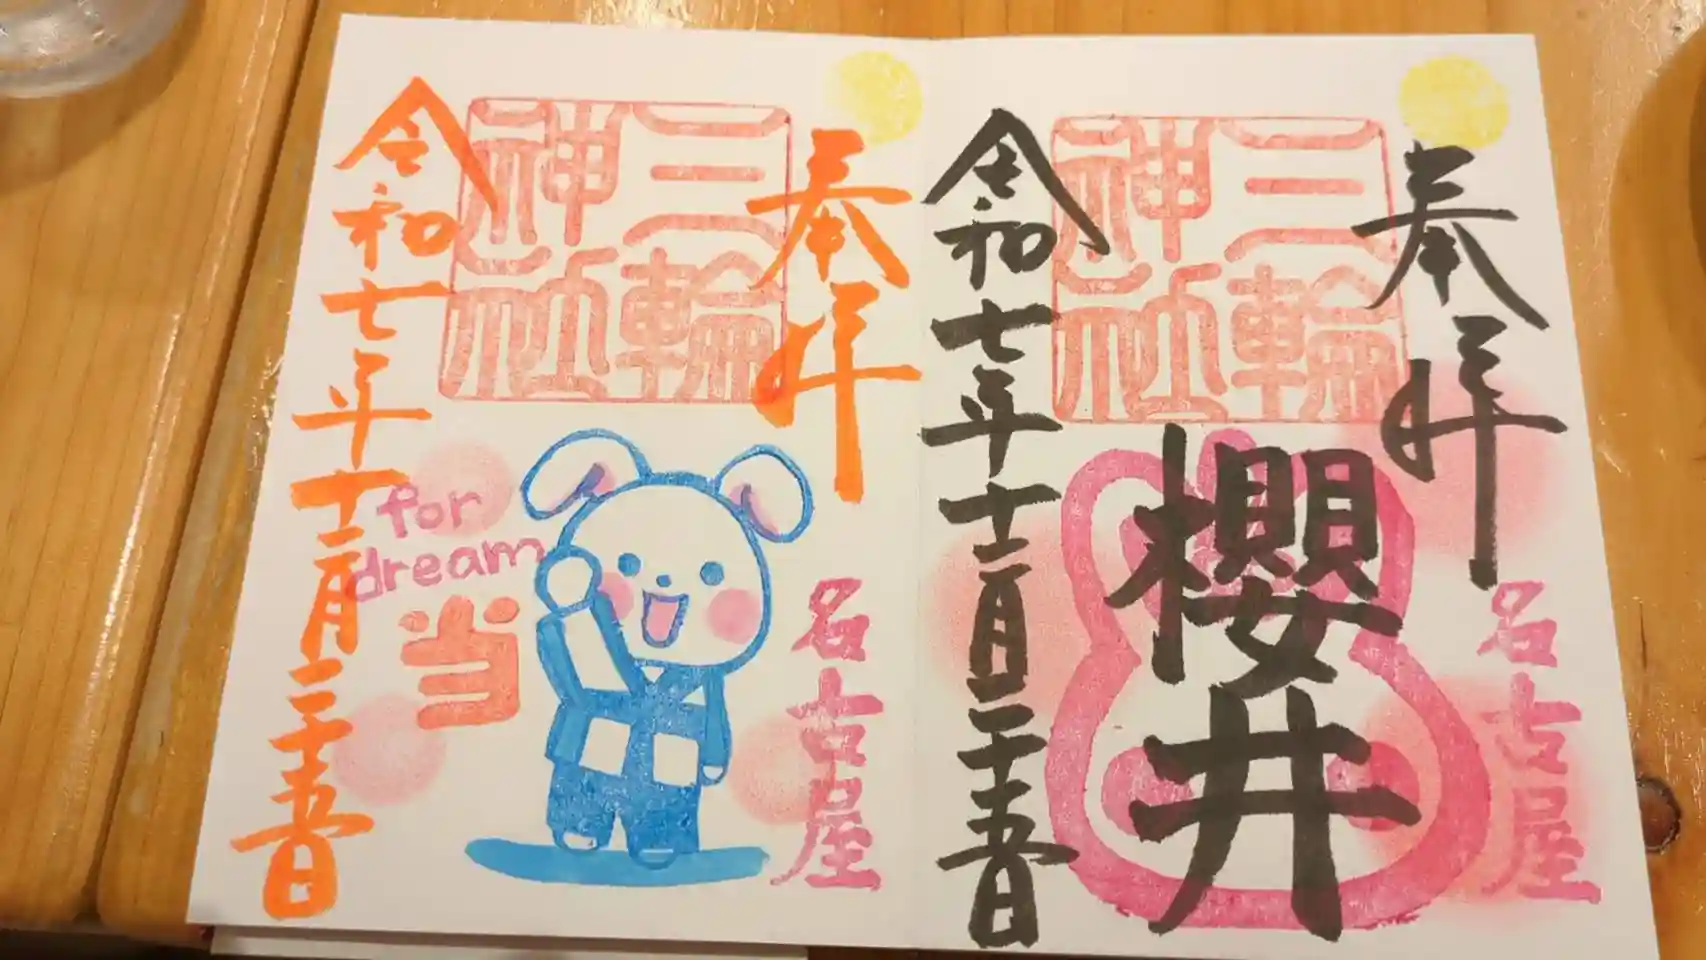 奉拝
三輪神社
櫻井
名古屋
令和七年十二月二十五日
奉拝
三輪神社
名古屋
for
dream
当
令和七年十二月二十五日